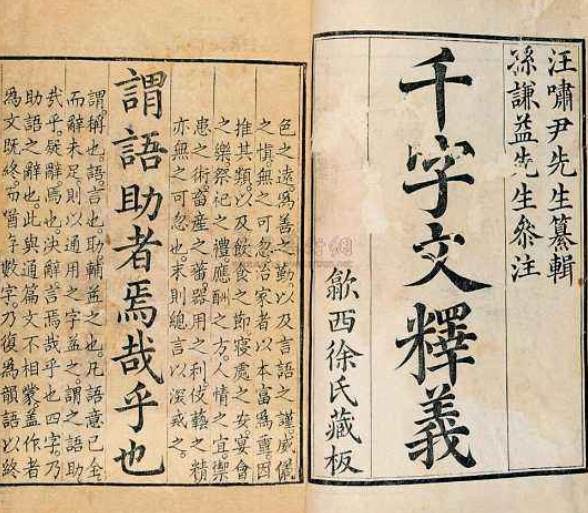 汪嘯尹先生纂輯
孫謙益先生參注
千字文釋義
歙西徐氏藏板
色之遠。爲善之勤。以及言語之謹。威儀
之慎。無之可忽。治家者以本富爲重。因
推其類。以及飲食之節。寢處之安。宴會
之樂。祭祀之禮。應酬之方。人情之宜。禦
患之術。畜產之蕃。器用之利。伎藝之精
亦無之可忽也。末則總言以深戒之。
謂語助者焉哉乎也
謂。稱也。語。言也。助。輔益之也。凡語意已全
而辭未足。則以通用之字益之。謂之語助
哉乎。疑辭。焉也。決辭。言焉哉乎也四字。乃
助語之辭也。此與通篇文不相蒙。蓋作者
爲文既終。而數字。乃復爲韻語以終